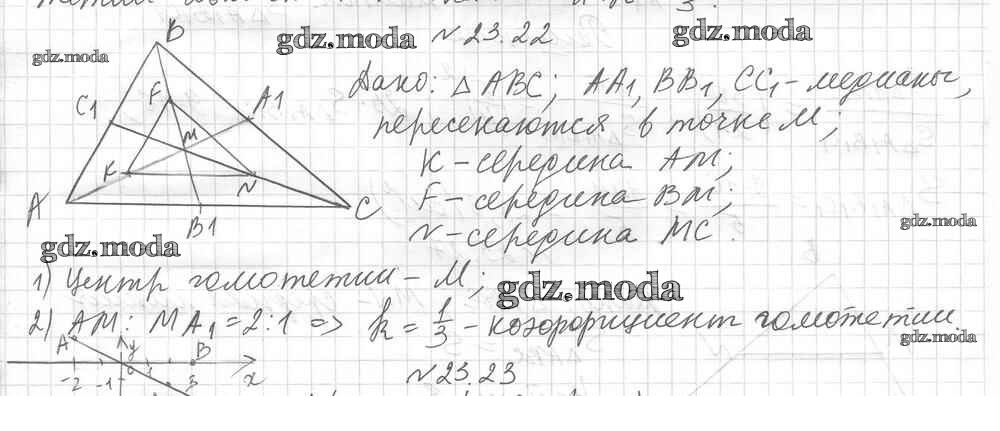 №23.22
Дано: △ABC; AA1, BB1, CC1 - медианы,
пересекаются в точке M;
K - середина AM;
F - середина BM;
N - середина MC.
B
F
A1
C1
M
K
N
A
B1
C
1) Центр гомотетии - M;
2) AM : MA1 = 2:1 => k = 1/3 - коэффициент гомотетии.
A
y
B
-2 -1 0 1 3 x
№23.23
gdz.moda
gdz.moda
gdz.moda
gdz.moda
gdz.moda
gdz.moda
gdz.moda